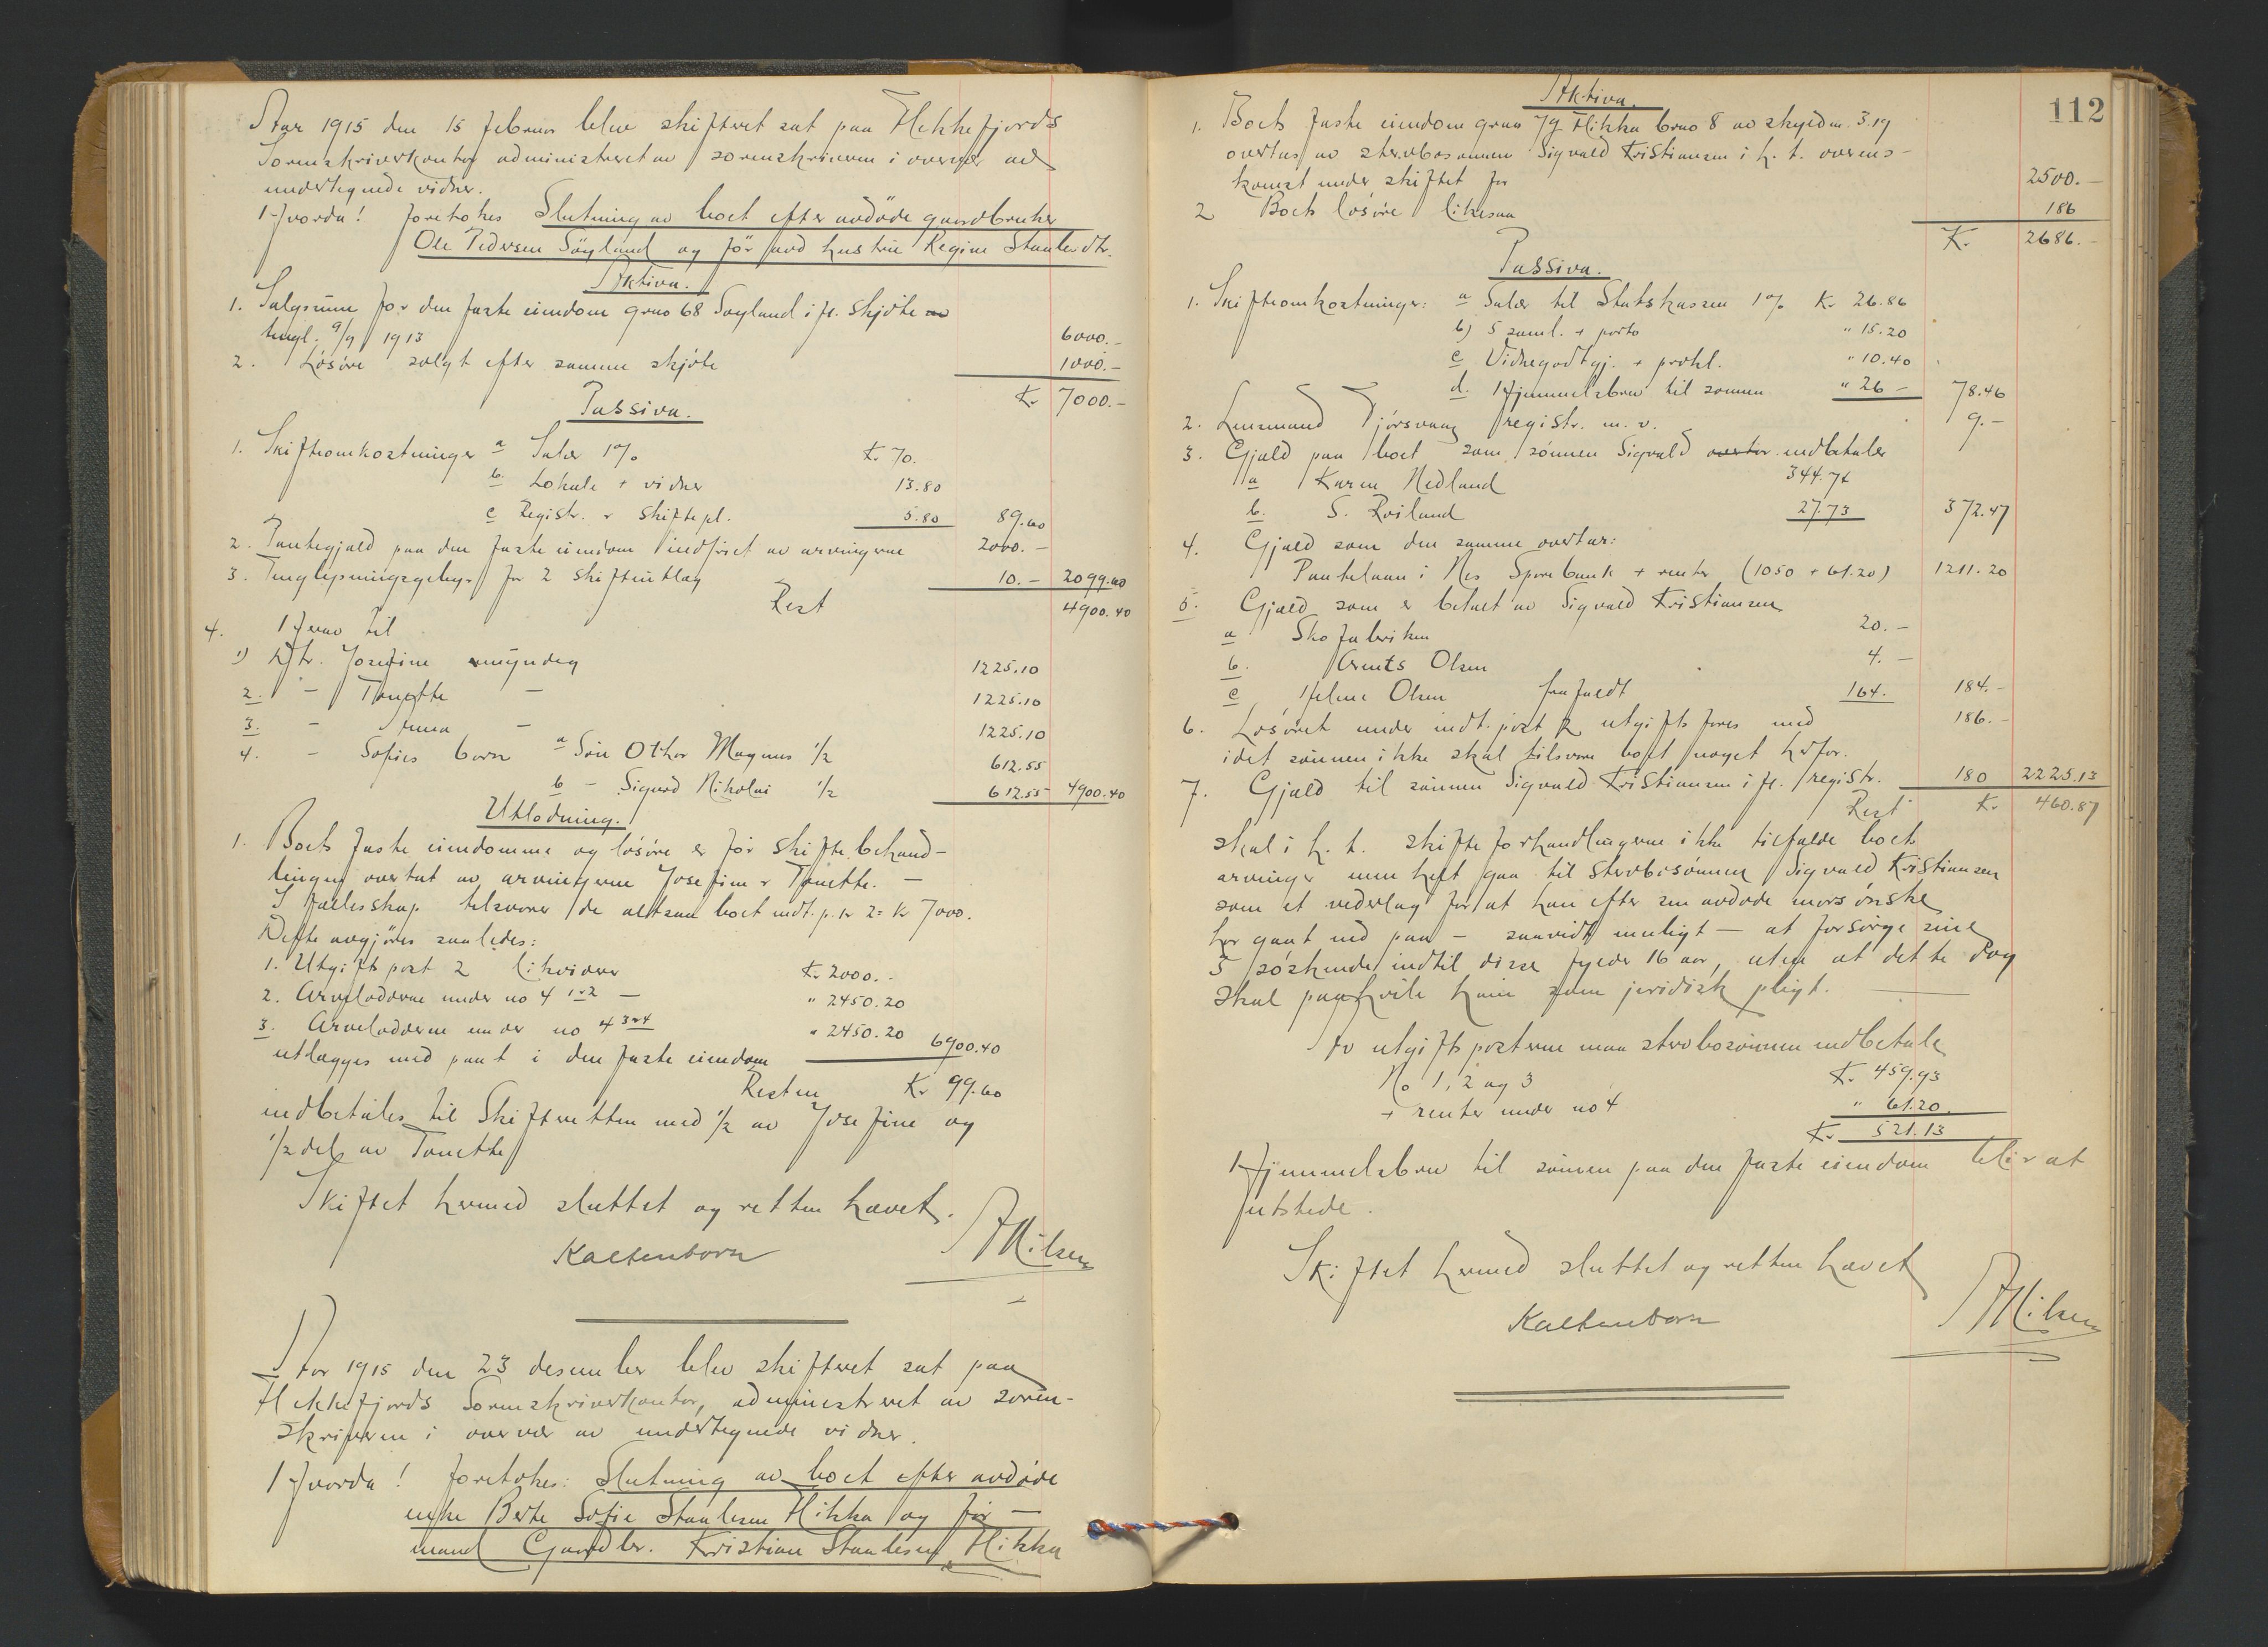 Aar 1915 den 15 februar blev skifteret sat paa Flekkefjords
Sorenskriverkontor administreret av sorenskriveren i overvær av
undertegnede vidner.
Hvorda! foretokes Slutning av boet efter avdøde gaardbruker
Ole Pedersen Søyland og før avd hustru Regine Staalesdtr.
Aktiva.
1. Salgssum for den faste eiendom gno 68 Søyland i fl. skjøte
tingl. 9/9 1913 6000.-
2. Løsøre solgt efter samme skjøte 1000.-
Kr 7000.-
Passiva.
1. Skifteomkostninger a Salær 1% Kr. 70.
b. Lokale + vidner 13.80
c Registr. + skiftepl. 5.80 89.60
2. Pantegjæld paa den faste eiendom indfriet av arvingerne 2000.-
3. Tinglysningsgebyr for 2 skifteutlæg 10.- 2099.60
Rest 4900.40
4. Arv til
1) Dtr. Josefine myndig 1225.10
2. - Tonette - 1225.10
3. - Anna - 1225.10
4. - Sofies børn a Søn Othar Magnus 1/2 612.55
b - Sigurd Nikolai 1/2 612.55 4900.40
Utlodning.
1. Boets faste eiendomme og løsøre er før skiftebehand-
lingen overtat av arvingerne Josefine & Tonette. -
I fællesskap tilsvarer de altsaa boet indt. p. 1 + 2 = kr 7000.
Dette avgjøres saaledes:
1. Utgiftspost 2 likvideres Kr. 2000.-
2. Arvelodderne under no 4 1+2 - " 2450.20
3. Arvelodderne under no 4 3+4 " 2450.20 6900.40
utlægges med pant i den faste eiendom
Resten Kr 99.60
indbetales til Skifteretten med 1/2 av Josefine og
1/2 del av Tonette
Skiftet hermed sluttet og retten hævet.
Kaltenborn A Nilsen
Aar 1915 den 23 desember blev skifteret sat paa
Flekkefjords Sorenskriverkontor, administreret av soren-
skriveren i overvær av undertegnede vidner.
Hvorda! foretokes: Slutning av boet efter avdøde
enke Berte Sofie Staalesen Hikka og før-
mand Gaardbr. Kristian Staalesen Hikka
112
Aktiva.
1. Boets faste eiendom gno 79 Hikka bno 8 av skyldm. 3.19
overtas av stervbosønnen Sigvald Kristiansen i h. t. overens-
komst under skiftet for 2500.-
2 Boets løsøre likesaa 186
Kr. 2686.-
Passiva.
1. Skifteomkostninger: a Salær til Statskassen 1% Kr 26.86
b) 5 saml. + porto " 15.20
c Vidnegodtgj. + prokl. " 10.40
d. Hjemmelsbrev til sønnen " 26 - 78.46
2. Lensmand Tjørsvaag registr. m. v. 9.-
3. Gjæld paa boet som sønnen Sigvald overtar indbetaler
a Karen Hedland 344.74
b. S. Roiland 27.73 372.47
4. Gjæld som den samme overtar:
Pantelaan i Nes Sparebank + renter (1050 + 61.20) 1211.20
5. Gjæld som er betalt av Sigvald Kristiansen
a Skofabriken 20.-
b. Arnts Olsen 4.-
c Helene Olsen frafaldt 164. 184.-
6. Løsøret under indt. post 2 utgiftsføres med 186.-
idet sønnen ikke skal tilsvare boet noget herfor.
7. Gjæld til sønnen Sigvald Kristiansen i fl. registr. 180 2225.13
Rest Kr. 460.87
skal i h. t. skifteforhandlingerne ikke tilfalde boets
arvinger men helt gaa til stervbosønnen Sigvald Kristiansen
som et vederlag for at han efter sin avdøde mors ønske
har gaat ind paa - saavidt muligt - at forsørge sine
5 søskende indtil disse fylder 16 aar, uten at dette dog
skal paahvile ham som juridisk pligt.
Av utgiftsposterne maa stervbosønnen indbetale
No 1, 2 og 3 Kr. 459.93
+ renter under no 4 " 61.20
Kr. 521.13
Hjemmelsbrev til sønnen paa den faste eiendom blir at
utstede.
Skiftet hermed sluttet og retten hævet
Kaltenborn A Nilsen